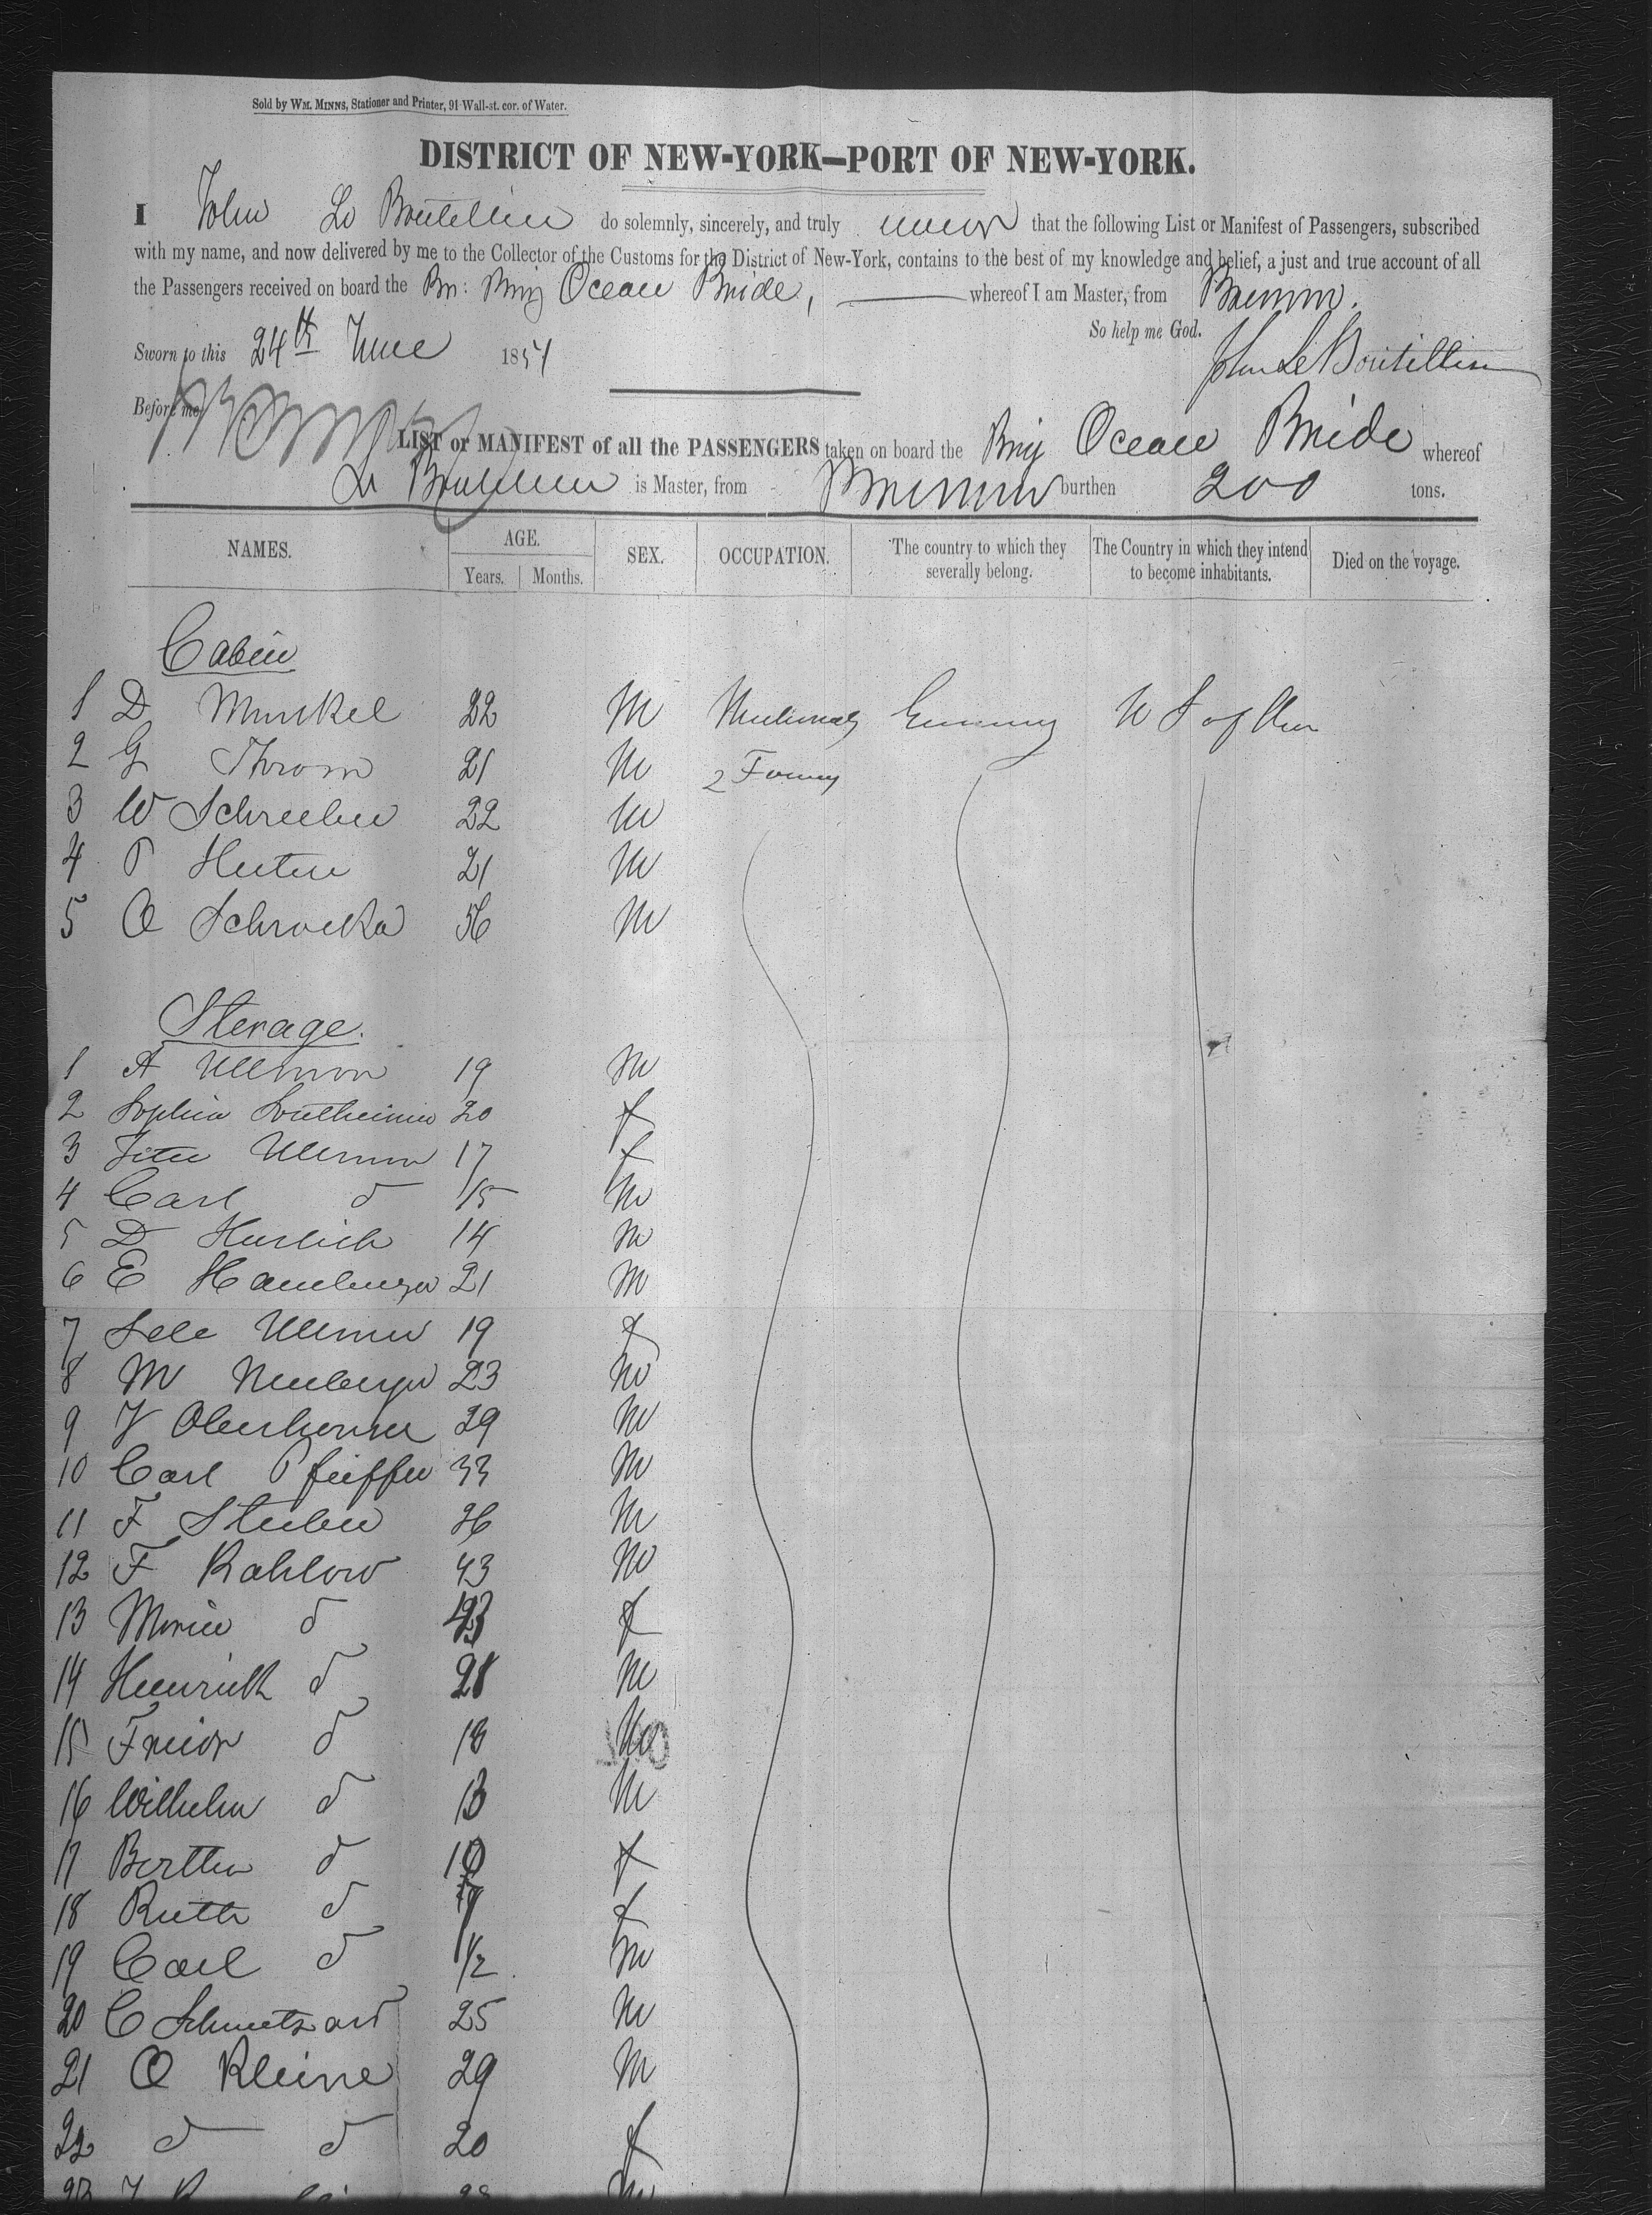 Sold by WM. MINNS, Stationer and Printer, 91 Wall-st. cor. of Water.
DISTRICT OF NEW-YORK—PORT OF NEW-YORK.
I John Le Boutillier do solemnly, sincerely, and truly swear that the following List or Manifest of Passengers, subscribed
with my name, and now delivered by me to the Collector of the Customs for the District of New-York, contains to the best of my knowledge and belief, a just and true account of all
the Passengers received on board the Br: Brig Ocean Bride, whereof I am Master, from Bremen.
So help me God.
Sworn to this 24th June 1854
John Le Boutillier
Before me,
LIST or MANIFEST of all the PASSENGERS taken on board the Brig Ocean Bride whereof
Le Boutillier is Master, from Bremen burthen 200 tons.
NAMES. AGE. Years. Months. SEX. OCCUPATION. The country to which they severally belong. The Country in which they intend to become inhabitants. Died on the voyage.
Cabin
1 D 22 M Germany U S of Am
2 G Throm 21 M 2
3 W Schreeber 22 M
4 P 21 M
5 O 56 M
Sterage.
1 A Ullman 19 M
2 Sophia 20 f
3 Ullman 17 f
4 Carl d 15 M
5 D 14 M
6 E Hamburger 21 M
7 19 f
8 M Neuberger 23 M
9 29 M
10 Carl Pfeiffer 33 M
11 F Steuber 26 M
12 F Rahlow 43 M
13 Marie d 43 f
14 Heinrich d 21 M
15 d 18 M
16 Wilhelm d 13 M
17 Bertha d 10 f
18 Ruth d 7 f
19 Carl d 1/2 M
20 C 25 M
21 O Kleine 29 M
22 d d 20 f
23